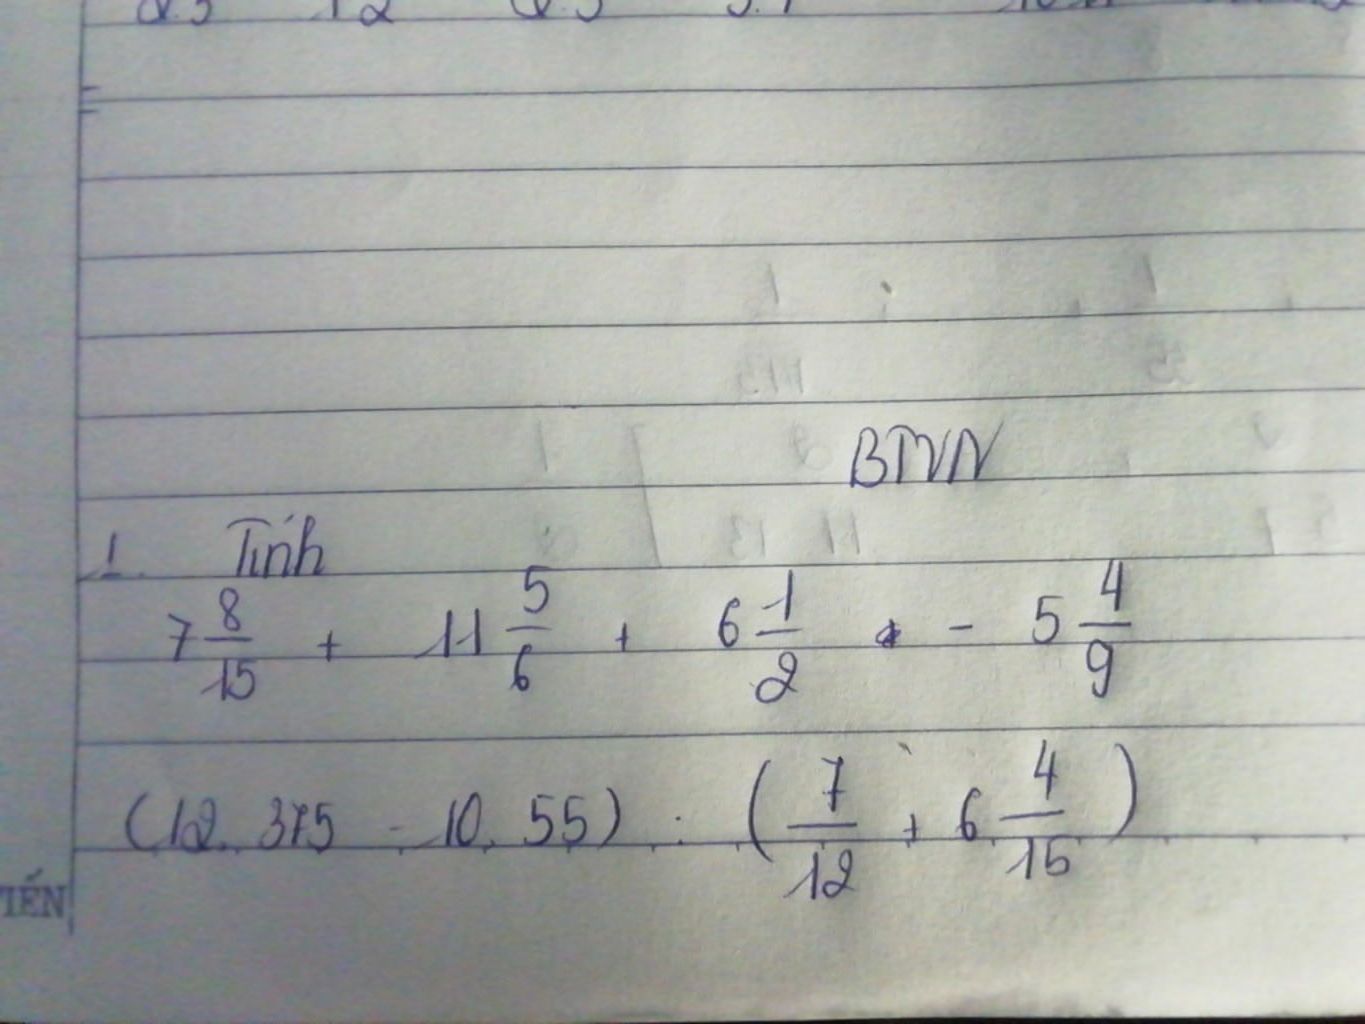 BTVN
1. Tính
7 8/15 + 11 5/6 + 6 1/2 - 5 4/9
(12. 375 - 10. 55) : (7/12 + 6 4/15)
TIẾN